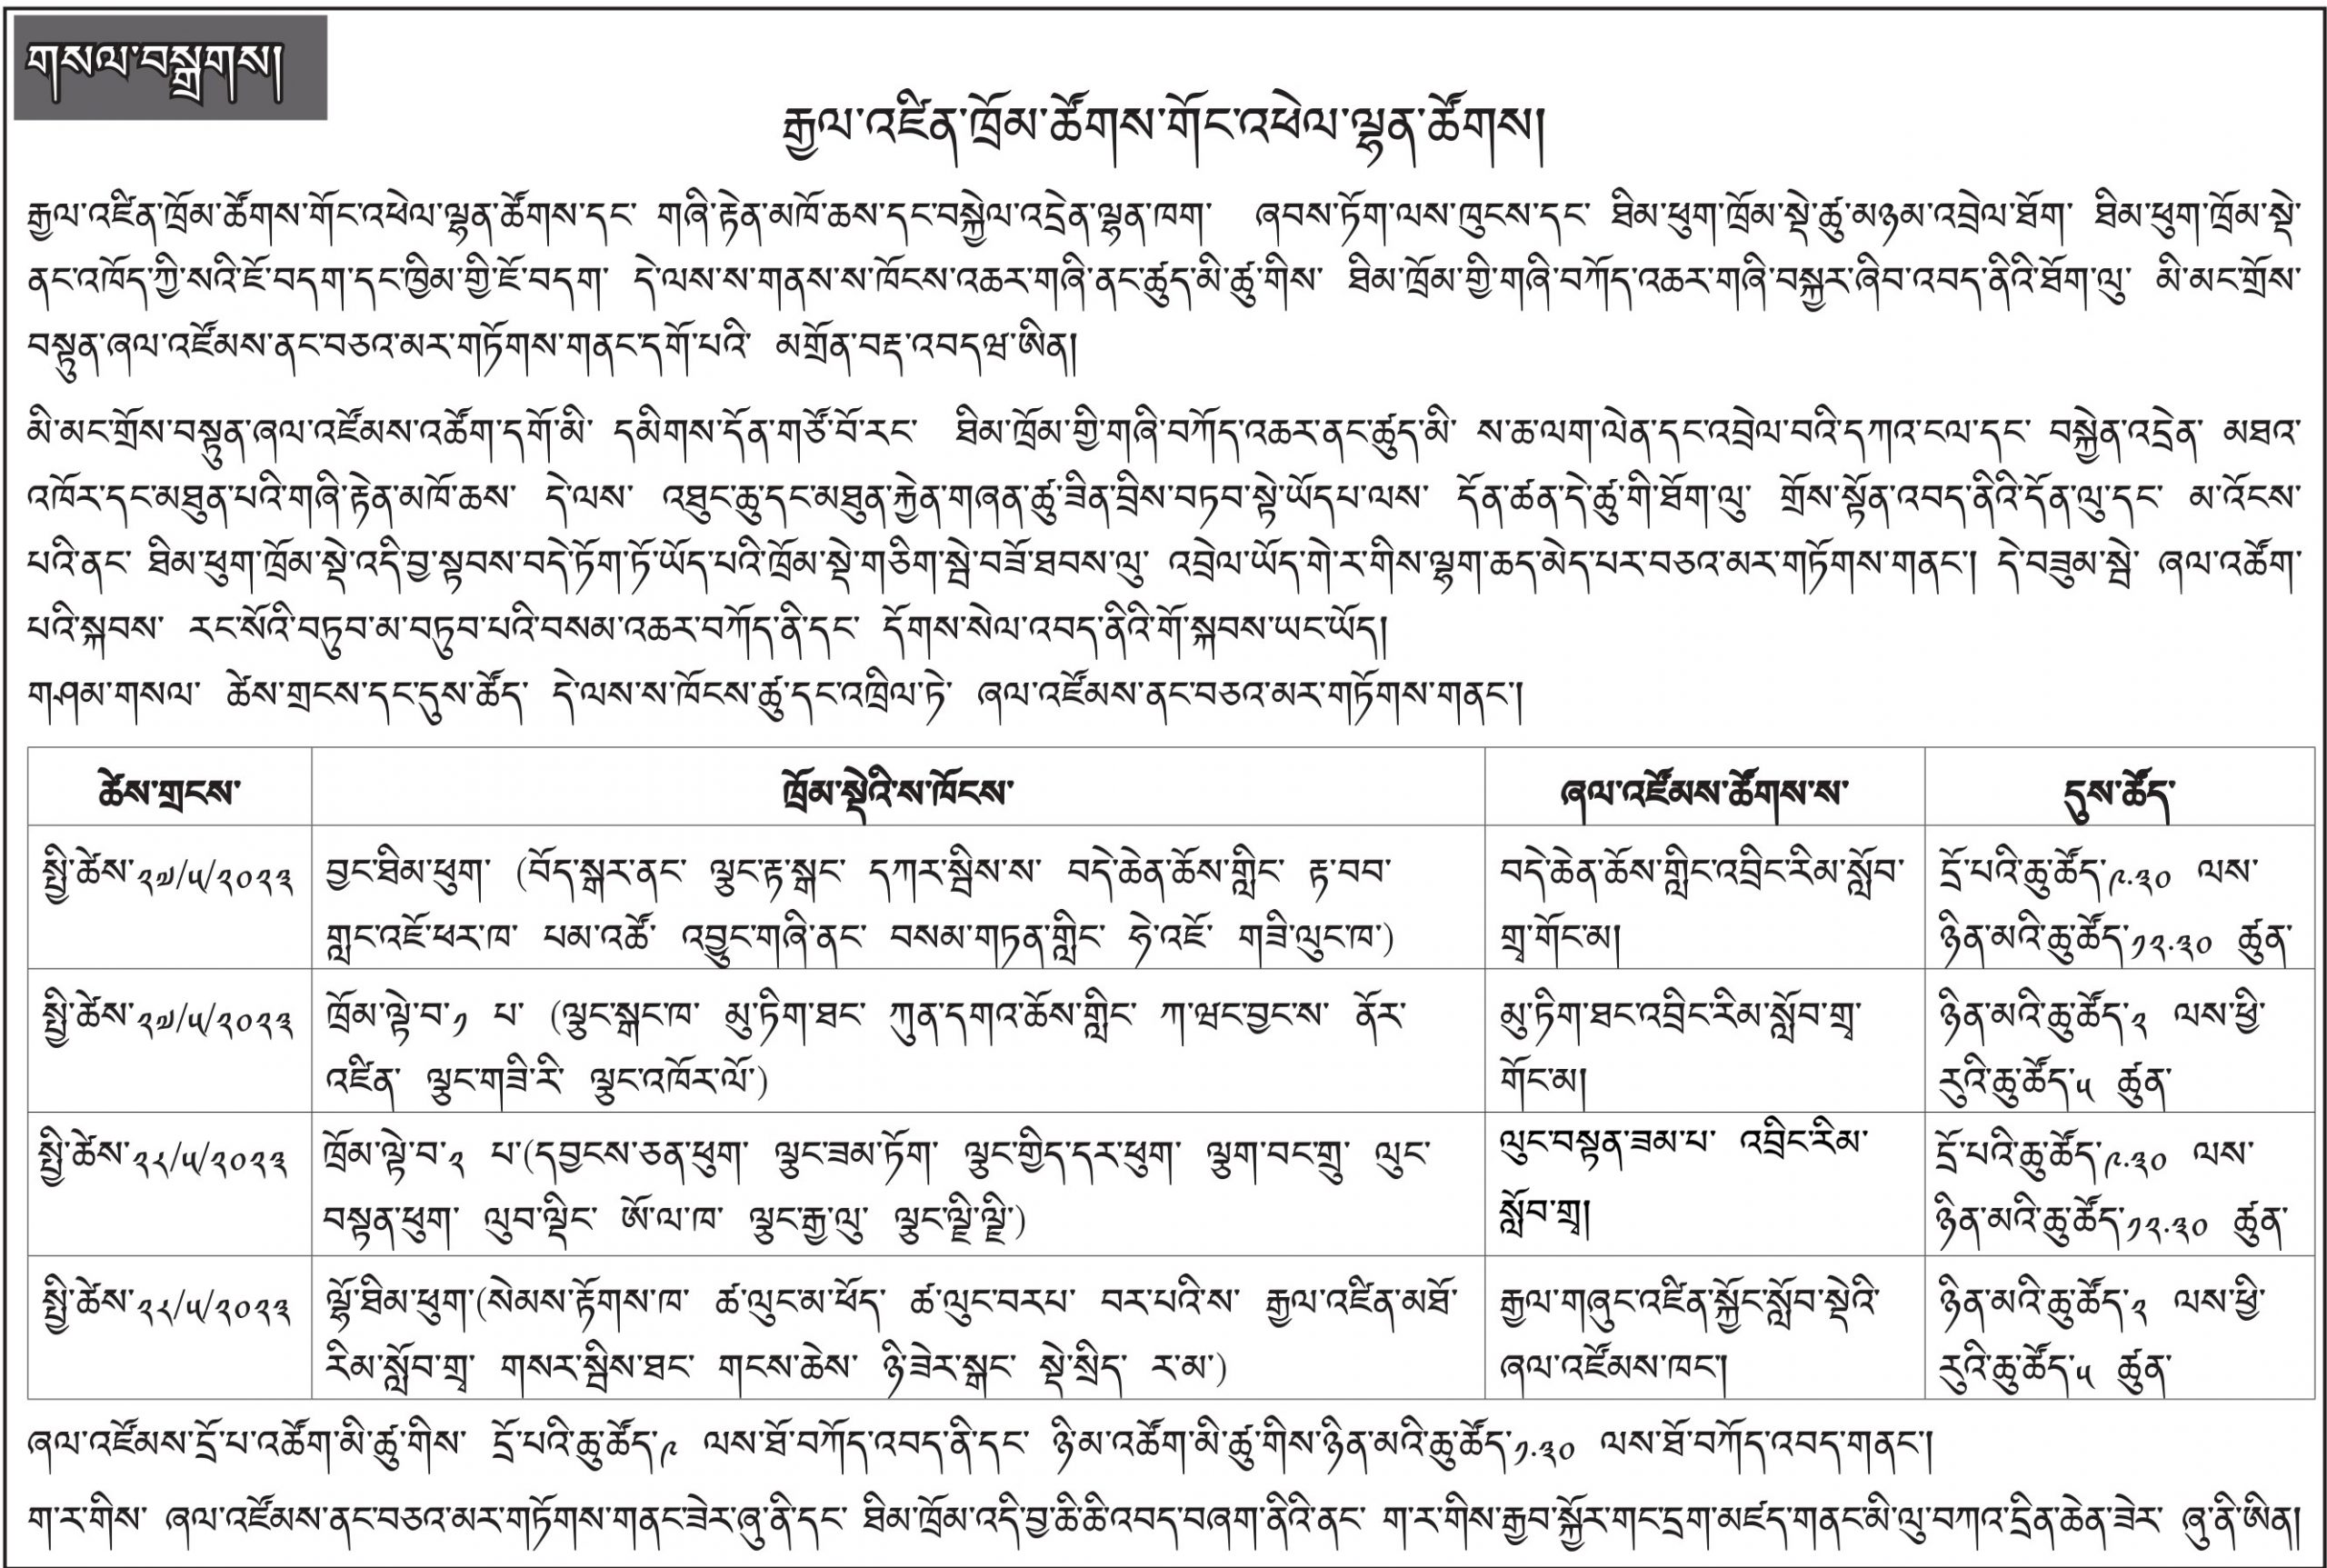 གསལ་བསྒྲགས།
རྒྱལ་འཛིན་ཁྲོམ་ཚོགས་གོང་འཕེལ་ལྷན་ཚོགས།
རྒྱལ་འཛིན་ཁྲོམ་ཚོགས་གོང་འཕེལ་ལྷན་ཚོགས་དང་ གཞི་རྟེན་མཁོ་ཆས་དང་བསྐྱེལ་འདྲེན་ལྷན་ཁག་ ཞབས་ཏོག་ལས་ཁུངས་དང་ ཐིམ་ཕུག་ཁྲོམ་སྡེ་ཚུ་མཉམ་འབྲེལ་ཐོག་ ཐིམ་ཕུག་ཁྲོམ་སྡེ་
ནང་འཁོད་ཀྱི་སའི་ཇོ་བདག་དང་ཁྱིམ་གྱི་ཇོ་བདག་ དེ་ལས་ས་གནས་ས་ཁོངས་འཆར་གཞི་ནང་ཚུད་མི་ཚུ་གིས་ ཐིམ་ཁྲོམ་གྱི་གཞི་བཀོད་འཆར་གཞི་བསྐྱར་ཞིབ་འབད་ནིའི་ཐོག་ལུ་ མི་མང་གྲོས་
བསྟུན་ཞལ་འཛོམས་ནང་བཅའ་མར་གཏོགས་གནང་དགོ་པའི་ མགྲོན་བརྡ་འབདཝ་ཨིན།
མི་མང་གྲོས་བསྟུན་ཞལ་འཛོམས་འཚོག་དགོ་མི་ དམིགས་དོན་གཙོ་བོ་རང་ ཐིམ་ཁྲོམ་གྱི་གཞི་བཀོད་འཆར་ནང་ཚུད་མི་ ས་ཆ་ལག་ལེན་དང་འབྲེལ་བའི་དཀའ་ངལ་དང་ བསྐྱེན་འདྲེན་ མཐའ་
འཁོར་དང་མཐུན་པའི་གཞི་རྟེན་མཁོ་ཆས་ དེ་ལས་ འཐུང་ཆུ་དང་མཐུན་རྐྱེན་གཞན་ཚུ་ཟིན་བྲིས་བཏབ་སྟེ་ཡོདཔ་ལས་ དོན་ཚན་དེ་ཚུ་གི་ཐོག་ལུ་ གྲོས་སྟོན་འབད་ནིའི་དོན་ལུ་དང་ མ་འོངས་
པའི་ནང་ ཐིམ་ཕུག་ཁྲོམ་སྡེ་འདི་བྱ་སྟབས་བདེ་ཏོག་ཏོ་ཡོད་པའི་ཁྲོམ་སྡེ་གཅིག་སྦེ་བཟོ་ཐབས་ལུ་ འབྲེལ་ཡོད་གེ་ར་གིས་ལྷག་ཆད་མེད་པར་བཅའ་མར་གཏོགས་གནང་། དེ་བཟུམ་སྦེ་ ཞལ་འཚོག་
པའི་སྐབས་ རང་སོའི་བཏུབ་མ་བཏུབ་པའི་བསམ་འཆར་བཀོད་ནི་དང་ དོགས་སེལ་འབད་ནིའི་གོ་སྐབས་ཡང་ཡོད།
གཤམ་གསལ་ ཚེས་གྲངས་དང་དུས་ཚོད་ དེ་ལས་ས་ཁོངས་ཚུ་དང་འཁྲིལ་ཏེ་ ཞལ་འཛོམས་ནང་བཅའ་མར་གཏོགས་གནང་།
ཚེས་གྲངས་ ཁྲོམ་སྡེའི་ས་ཁོངས་ ཞལ་འཛོམས་ཚོགས་ས་ དུས་ཚོད་
སྤྱི་ཚེས་༢༧/༥/༢༠༢༣ བྱང་ཐིམ་ཕུག་ (བོད་སྒར་ནང་ ལྕང་རྟ་སྒང་ དཀར་སྦིས་ས་ བདེ་ཆེན་ཆོས་གླིང་ རྟ་བབ་ བདེ་ཆེན་ཆོས་གླིང་འབྲིང་རིམ་སློབ་ དྲོ་པའི་ཆུ་ཚོད་༩.༣༠ ལས་
གླང་འཇོ་ཕར་ཁ་ པམ་འཚོ་ འབྱུང་གཞི་ནང་ བསམ་གཏན་གླིང་ ཧེ་འཇོ་ གཟི་ལུང་ཁ་) གྲྭ་གོང་མ། ཉིན་མའི་ཆུ་ཚོད་༡༢.༣༠ ཚུན་
སྤྱི་ཚེས་༢༧/༥/༢༠༢༣ ཁྲོམ་ལྟེ་བ་༡ པ་ (ལྕང་སྒང་ཁ་ མུ་ཏིག་ཐང་ ཀུན་དགའ་ཆོས་གླིང་ ཀ་ཝང་བྱང་ས་ ནོར་ མུ་ཏིག་ཐང་འབྲིང་རིམ་སློབ་གྲྭ་ ཉིན་མའི་ཆུ་ཚོད་༢ ལས་ཕྱི་
འཛིན་ ལྕང་གཟི་རི་ ལྕང་འཁོར་ལོ་) གོང་མ། རུའི་ཆུ་ཚོད་༥ ཚུན་
སྤྱི་ཚེས་༢༨/༥/༢༠༢༣ ཁྲོམ་ལྟེ་བ་༢ པ་(དབྱངས་ཅན་ཕུག་ ལྕང་ཟམ་ཏོག་ ལྕང་གྱིད་དར་ཕུག་ ལྕག་བང་གྲུ་ ལུང་ ལུང་བསྟན་ཟམ་པ་ འབྲིང་རིམ་ དྲོ་པའི་ཆུ་ཚོད་༩.༣༠ ལས་
བསྟན་ཕུག་ ལུབ་ལྡིང་ ཨོ་ལ་ཁ་ ལྕང་རྒྱ་ལུ་ ལྕང་ལྗི་ལྗི་) སློབ་གྲྭ། ཉིན་མའི་ཆུ་ཚོད་༡༢.༣༠ ཚུན་
སྤྱི་ཚེས་༢༨/༥/༢༠༢༣ ལྷོ་ཐིམ་ཕུག་(སེམས་རྟོགས་ཁ་ ཚ་ལུངམ་ཕོད་ ཚ་ལུང་བརཔ་ བར་པའི་ས་ རྒྱལ་འཛིན་མཐོ་ རྒྱལ་གཞུང་འཛིན་སྐྱོང་སློབ་སྡེའི་ ཉིན་མའི་ཆུ་ཚོད་༢ ལས་ཕྱི་
རིམ་སློབ་གྲྭ་ གསར་སྦིས་ཐང་ གངས་ཆེས་ ཉི་ཟེར་སྒང་ སྡེ་སྲིད་ ར་མ་) ཞལ་འཛོམས་ཁང་། རུའི་ཆུ་ཚོད་༥ ཚུན་
ཞལ་འཛོམས་དྲོ་པ་འཚོག་མི་ཚུ་གིས་ དྲོ་པའི་ཆུ་ཚོད་༩ ལས་ཐོ་བཀོད་འབད་ནི་དང་ ཉི་མ་འཚོག་མི་ཚུ་གིས་ཉིན་མའི་ཆུ་ཚོད་༡.༣༠ ལས་ཐོ་བཀོད་འབད་གནང་།
ག་ར་གིས་ ཞལ་འཛོམས་ནང་བཅའ་མར་གཏོགས་གནང་ཟེར་ཞུ་ནི་དང་ ཐིམ་ཁྲོམ་འདི་བྱ་ཆི་ཆི་འབད་བཞག་ནིའི་ནང་ ག་ར་གིས་རྒྱབ་སྐྱོར་གང་དྲག་མཛད་གནང་མི་ལུ་བཀའ་དྲིན་ཆེན་ཟེར་ ཞུ་ནི་ཨིན།